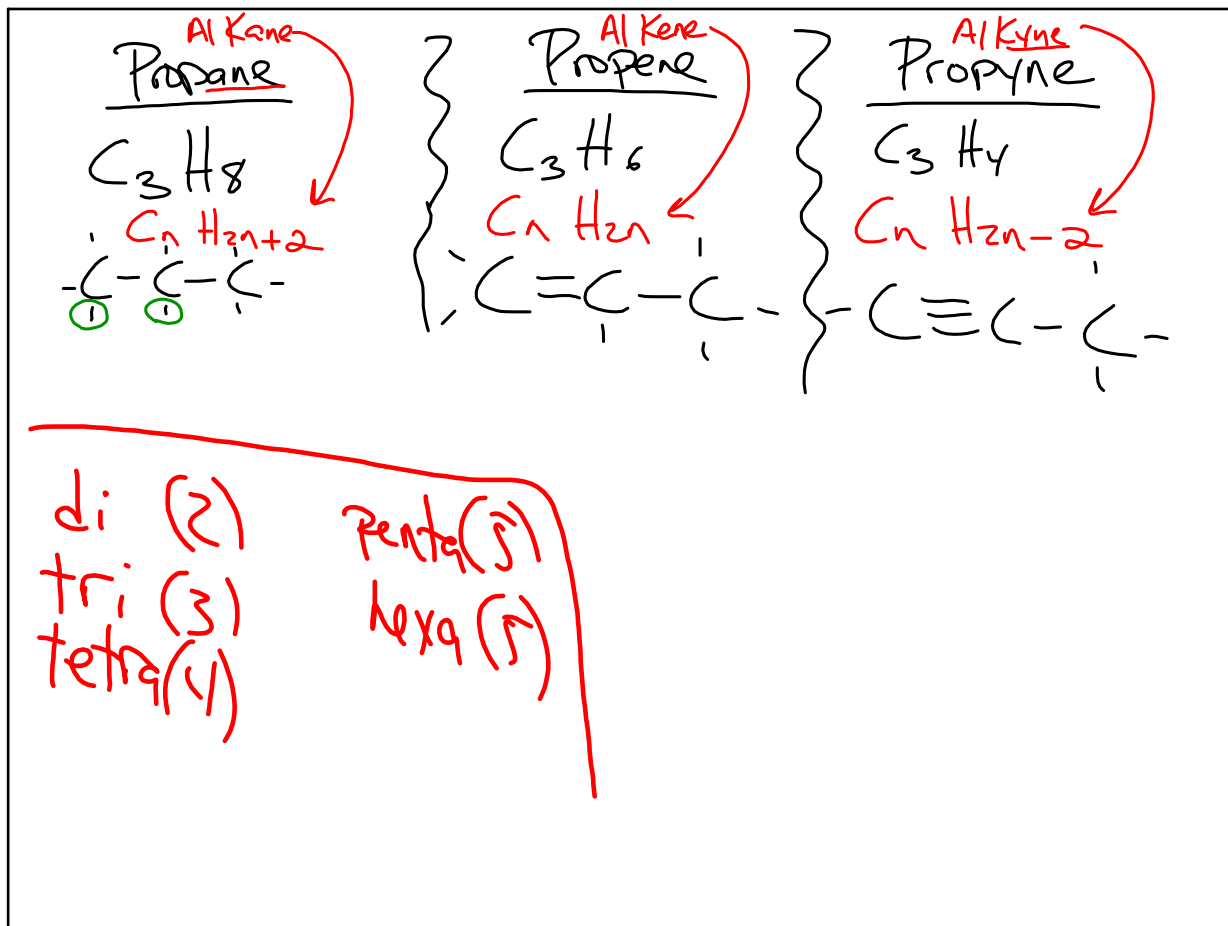 Alkane
Propane
C3H8
CnH2n+2
-C-C-C-
Alkene
Propene
C3H6
CnH2n
C=C-C-
Alkyne
Propyne
C3H4
CnH2n-2
-C≡C-C-
di (2)
tri (3)
tetra(4)
penta(5)
hexa(5)